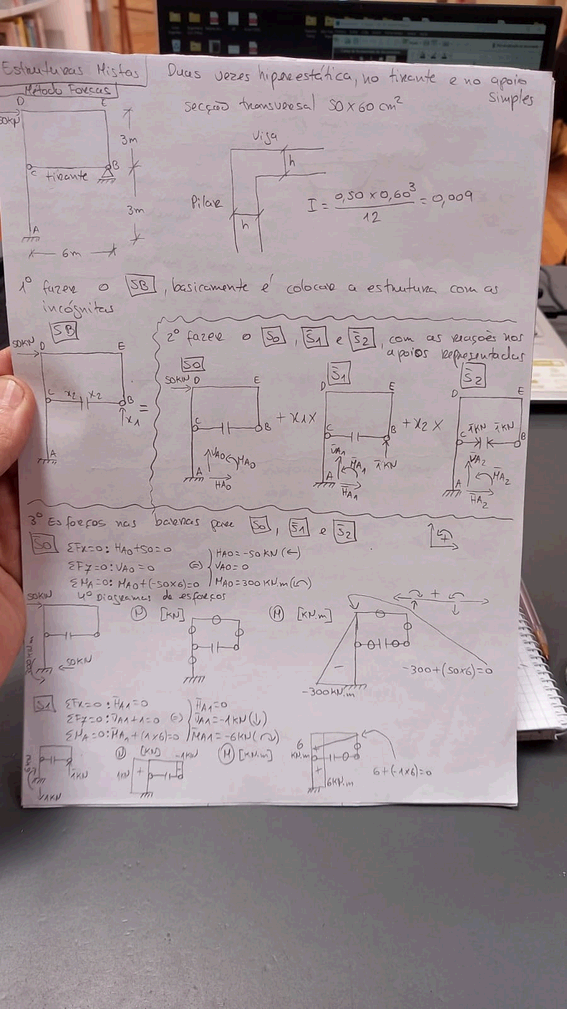 Estruturas Mistas
Duas vezes hiperestática, no tirante e no apoio
simples
Método Forças
secção transversal 50x60 cm²
50KN
D
E
3m
C
tirante
B
3m
A
6m
Viga
h
Pilar
h
I = 0,50 x 0,60³ / 12 = 0,009
1º fazer o SB, basicamente é colocar a estrutura com as
incógnitas
SB
50KN
D
E
C
x2
x2
B
x1
A
=
2º fazer o S0, S̄1 e S̄2, com as reações nos
apoios representadas
S0
50KN
D
E
C
B
VA0
MA0
A
HA0
+ x1x
S̄1
D
E
C
B
V̄A1
M̄A1
1̄KN
A
H̄A1
+ x2 x
S̄2
D
E
1̄KN
1̄KN
C
B
V̄A2
M̄A2
A
H̄A2
3º Esforços nas barras para S0, S̄1 e S̄2
S0
ΣFx=0: HA0+50=0
HA0=-50KN (←)
ΣFy=0: VA0=0
VA0=0
ΣMA=0: MA0+(-50x6)=0
MA0=300KN.m
4º Diagramas de esforços
50KN
50KN
N [KN]
M [KN.m]
+
-
-300KN.m
-300+(50x6)=0
S̄1
ΣFx=0: H̄A1=0
H̄A1=0
ΣFy=0: V̄A1+1=0
V̄A1=-1KN (↓)
ΣMA=0: M̄A1+(1x6)=0
MA1=-6KN
1KN
1KN
N [KN]
1KN
+
-1KN
M [KN.m]
6
KN.m
+
6KN.m
6+(-1x6)=0